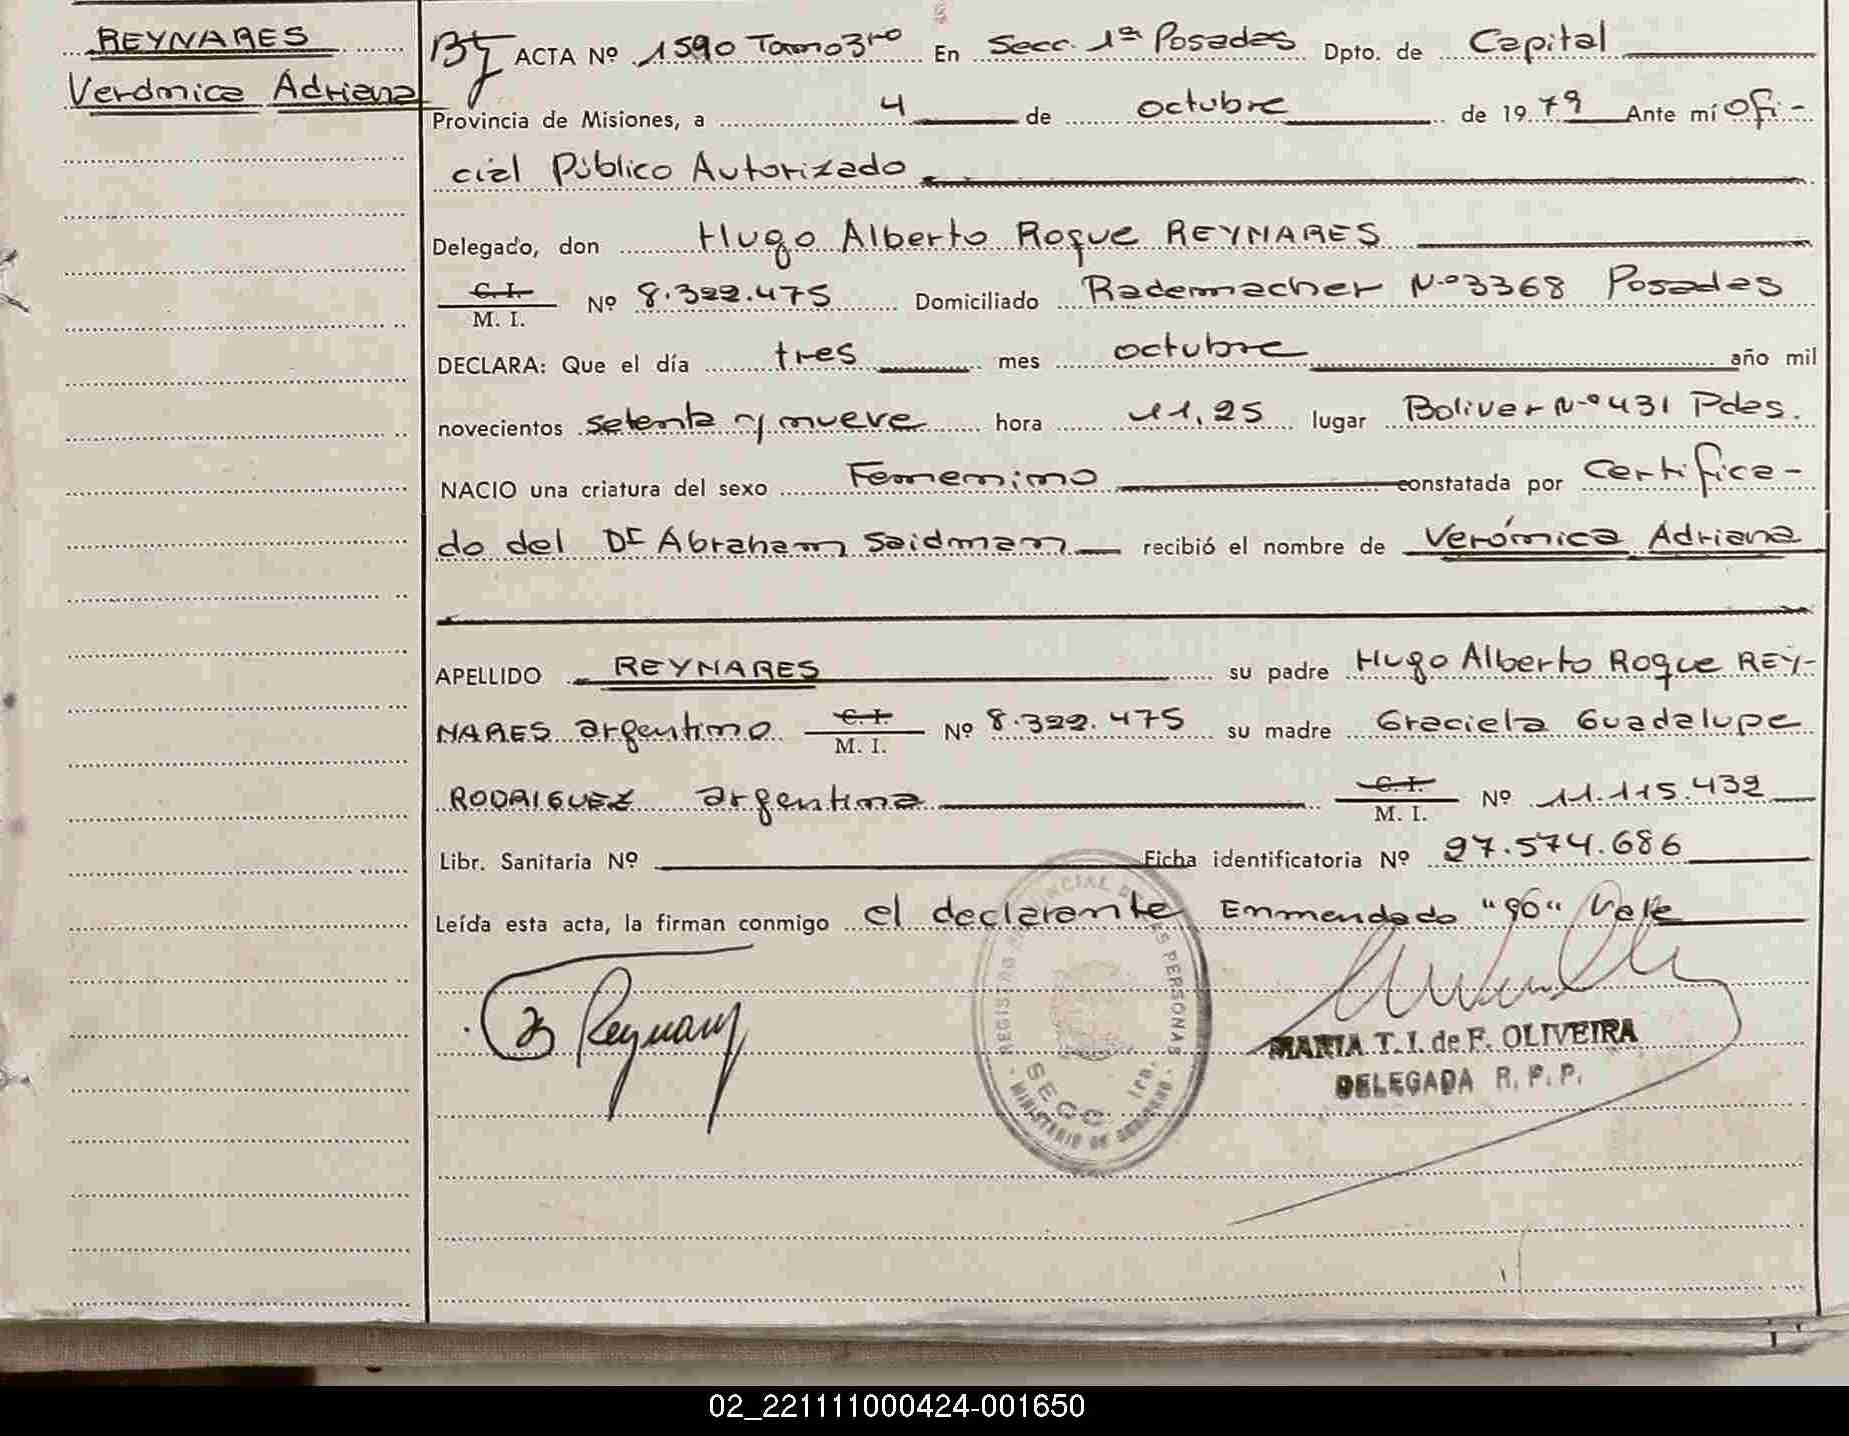 REYNARES
Verónica Adriana
ACTA Nº 1590 Tomo 3ro En Secc. 1ª Posadas Dpto. de Capital
Provincia de Misiones, a 4 de octubre de 1979 Ante mí ofi-
cial Público Autorizado
Delegado, don Hugo Alberto Roque REYNARES
C. I.
M. I. Nº 8.322.475 Domiciliado Rademacher Nº 3368 Posadas
DECLARA: Que el día tres mes octubre año mil
novecientos setenta y nueve hora 11,25 lugar Bolivar Nº 431 Pdas.
NACIO una criatura del sexo Femenino constatada por Certifica-
do del Dr Abraham Saidman recibió el nombre de Verónica Adriana
APELLIDO REYNARES su padre Hugo Alberto Roque REY-
NARES argentino C. I.
M. I. Nº 8.322.475 su madre Graciela Guadalupe
RODRIGUEZ argentina C. I.
M. I. Nº 11.115.432
Libr. Sanitaria Nº Ficha identificatoria Nº 27.574.686
Leída esta acta, la firman conmigo el declarante Enmendado "90" Vale
REGISTRO PROVINCIAL DE LAS PERSONAS
SECC. 1ra.
MINISTERIO DE GOBIERNO
MARIA T. I. de F. OLIVEIRA
DELEGADA R. P. P.
02_221111000424-001650